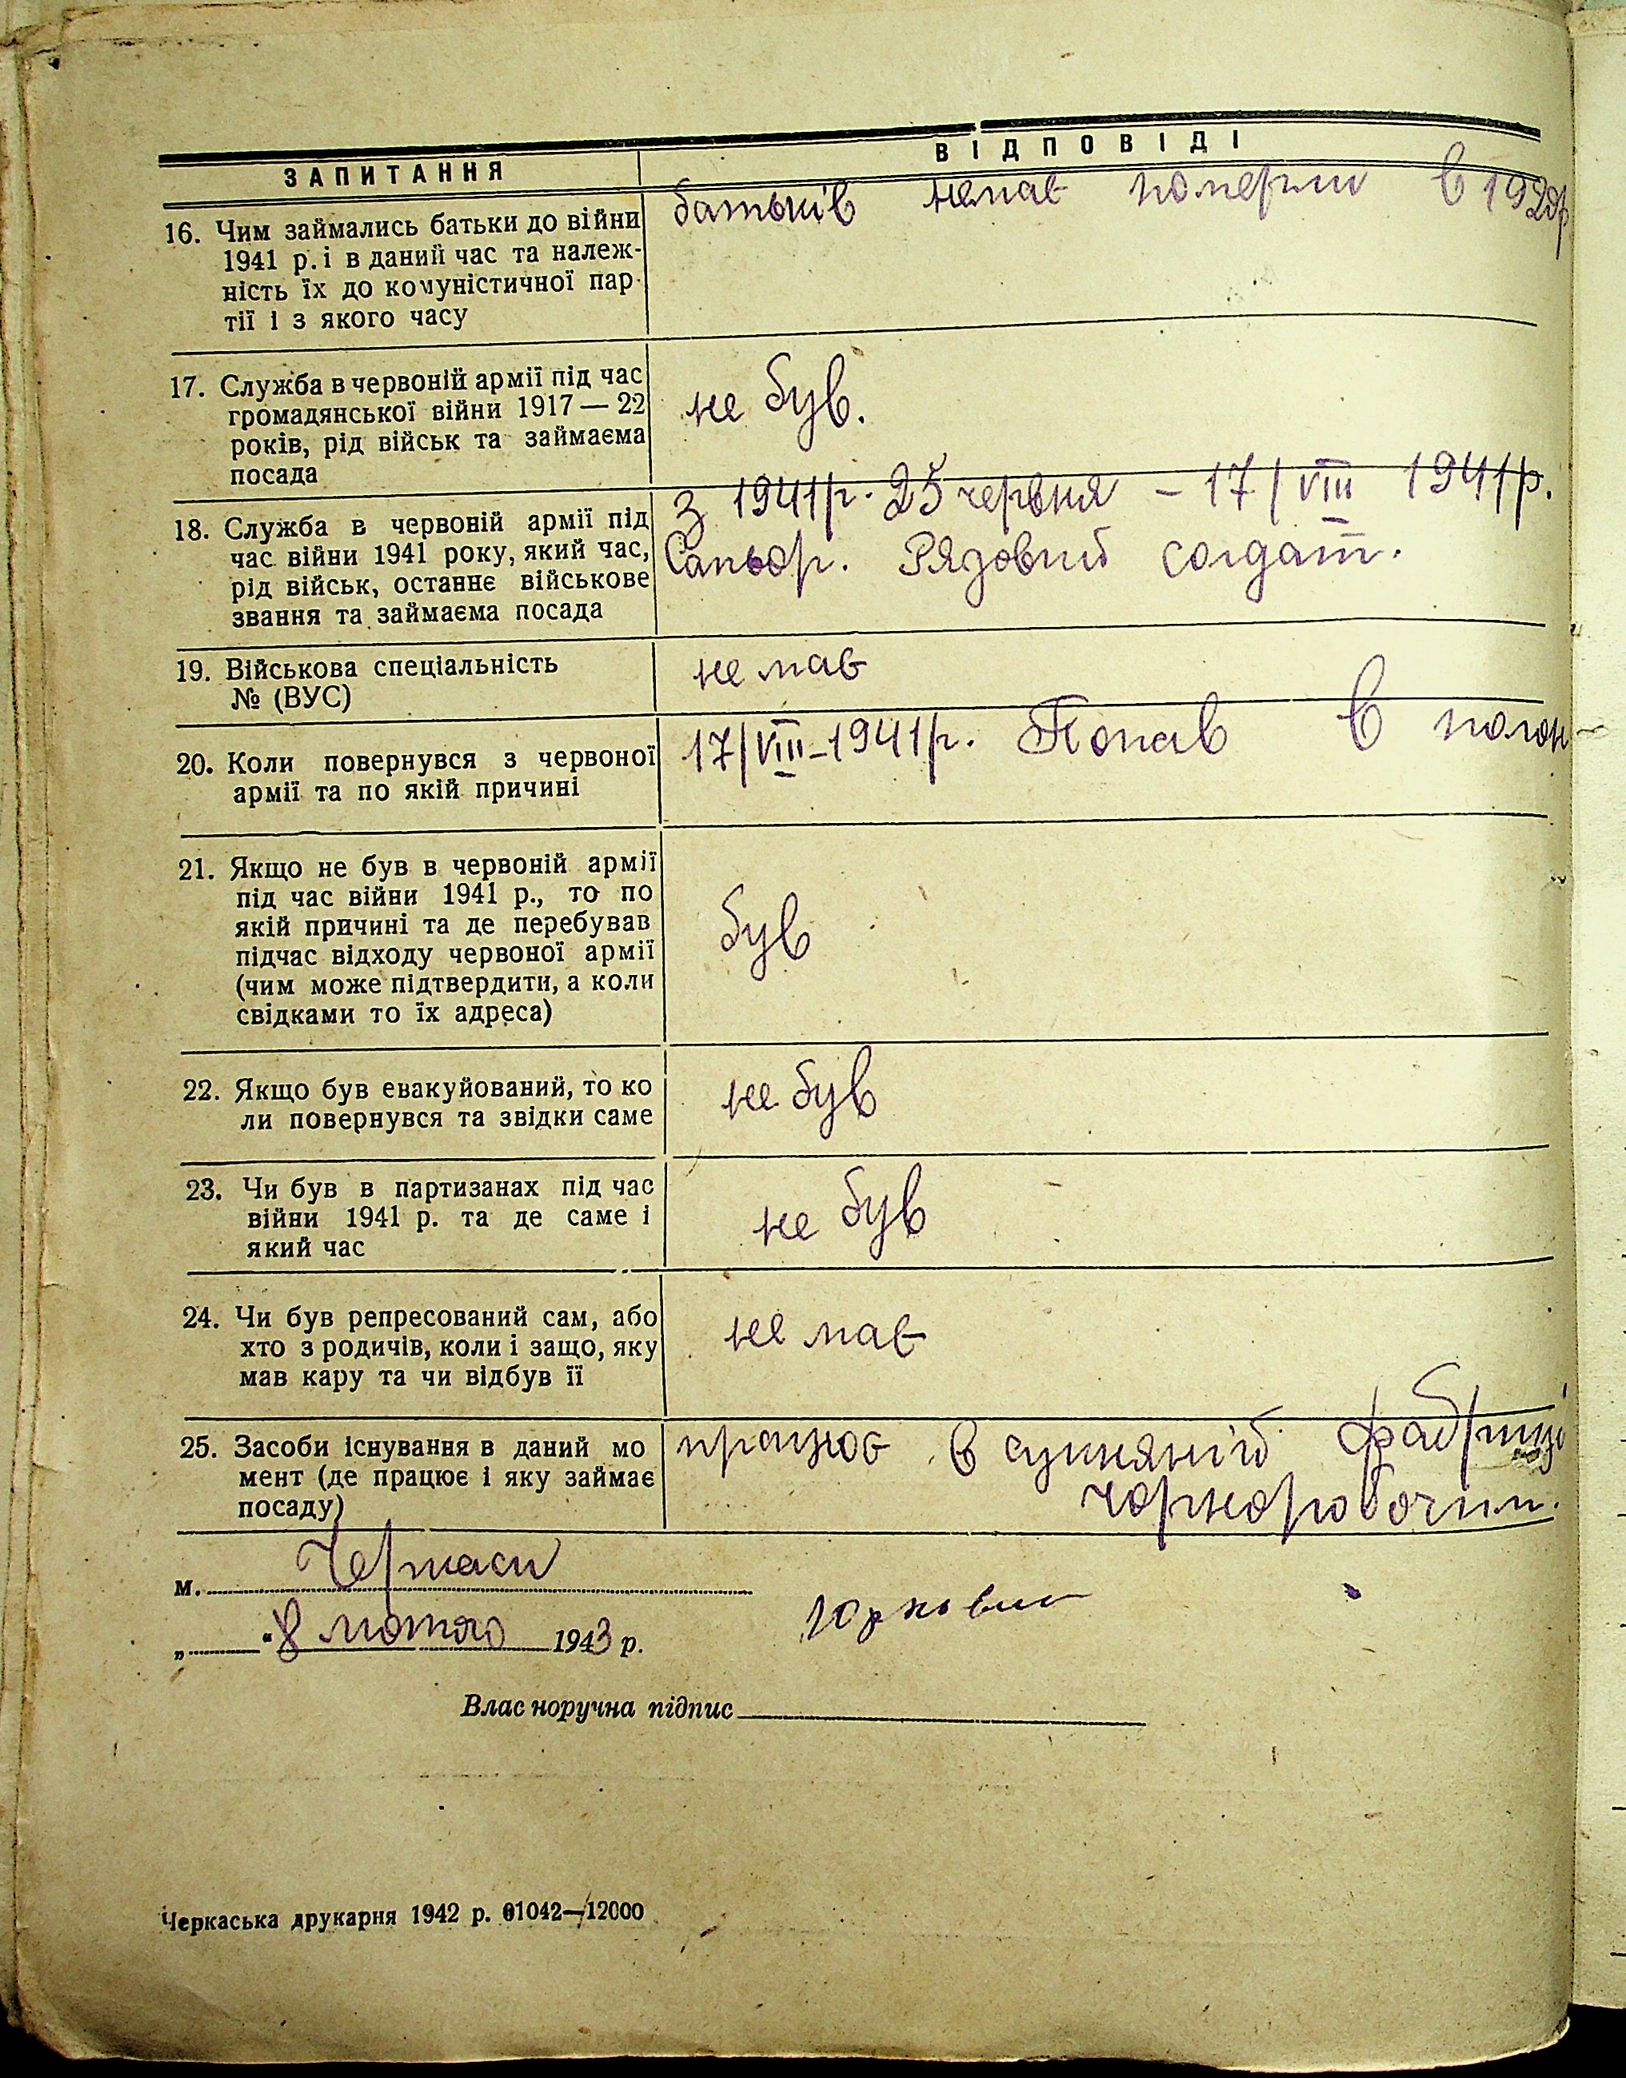 ЗАПИТАННЯ
ВІДПОВІДІ
16. Чим займались батьки до війни
1941 р. і в даний час та належ-
ність їх до комуністичної пар-
тії і з якого часу
батьків немає померли в 192
17. Служба в червоній армії під час
громадянської війни 1917—22
років, рід військ та займаєма
посада
не був.
18. Служба в червоній армії під
час війни 1941 року, який час,
рід військ, останнє військове
звання та займаєма посада
З 1941р. 25 червня – 17/VIII 1941р.
Сапьор. Рядовий солдат.
19. Військова спеціальність
№ (ВУС)
не має
20. Коли повернувся з червоної
армії та по якій причині
17/VIII–1941р. Попав в полон
21. Якщо не був в червоній армії
під час війни 1941 р., то по
якій причині та де перебував
підчас відходу червоної армії
(чим може підтвердити, а коли
свідками то їх адреса)
був
22. Якщо був евакуйований, то ко
ли повернувся та звідки саме
не був
23. Чи був в партизанах під час
війни 1941 р. та де саме і
який час
не був
24. Чи був репресований сам, або
хто з родичів, коли і защо, яку
мав кару та чи відбув її
не має
25. Засоби існування в даний мо
мент (де працює і яку займає
посаду)
працює в сукняній фабриці
чорноробочим.
м. Черкаси
„ “ 8 лютого 1943 р.
Власноручна підпис
Черкаська друкарня 1942 р. 01042—12000